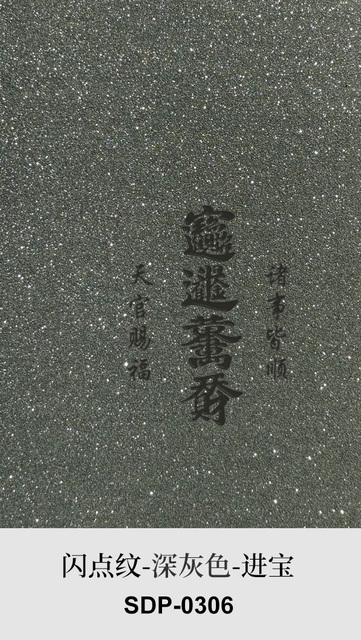 诸事皆顺
天官赐福
闪点纹-深灰色-进宝
SDP-0306